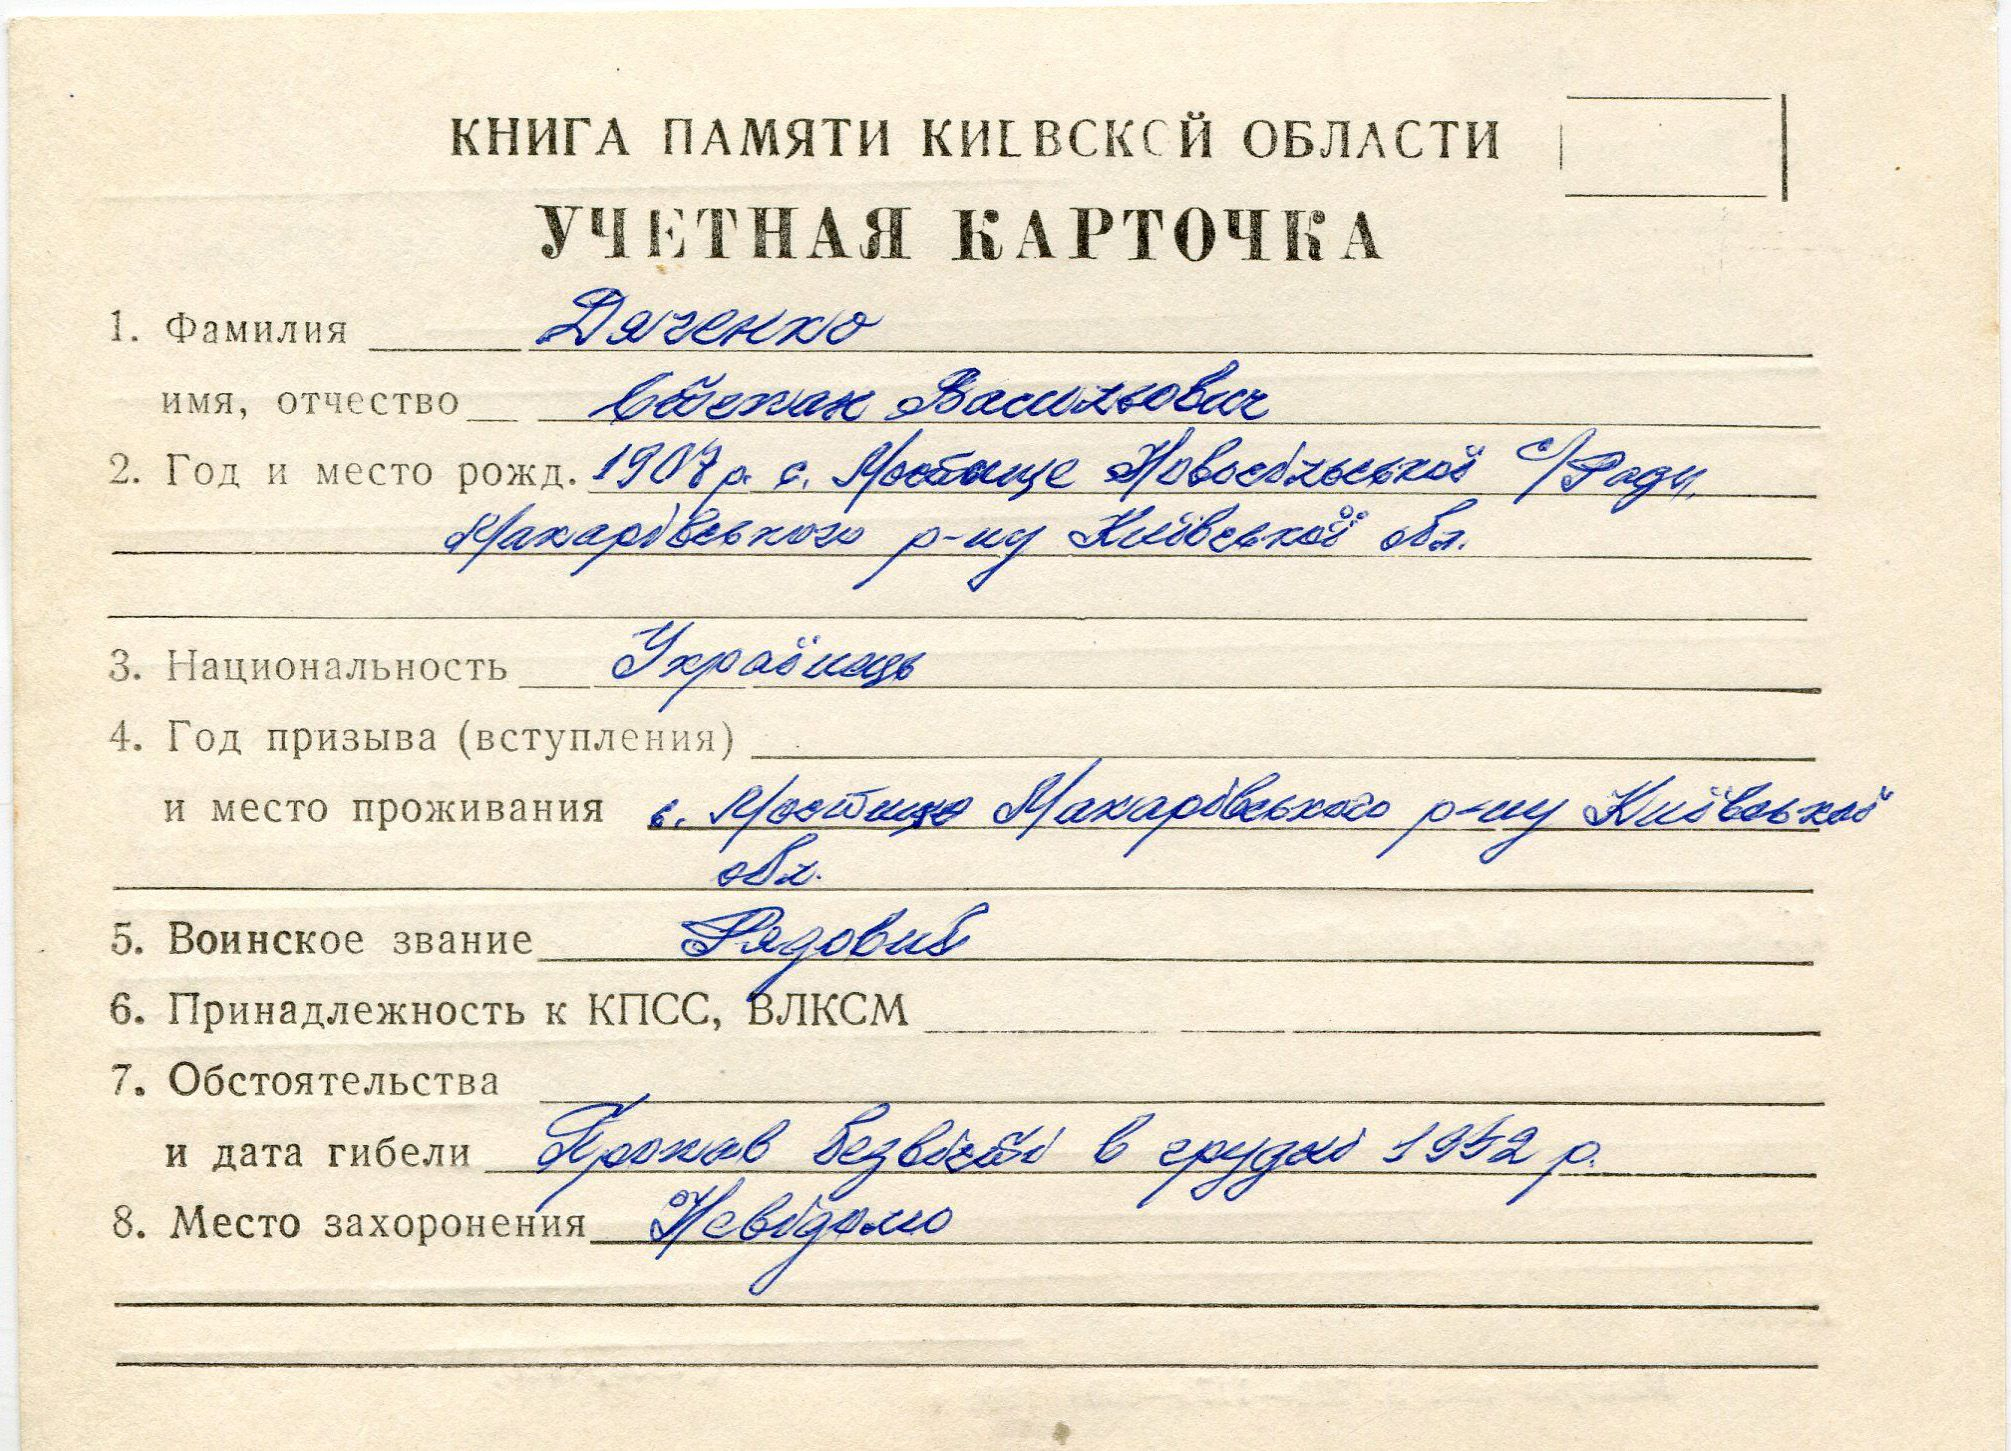 КНИГА ПАМЯТИ КИЕВСКОЙ ОБЛАСТИ
УЧЕТНАЯ КАРТОЧКА
1. Фамилия Дяченко
имя, отчество Степан Васильович
2. Год и место рожд. 1907 р. с. Мостище Новосільської с/Ради,
Макарівського р-ну Київської обл.
3. Национальность Українець
4. Год призыва (вступления)
и место проживания с. Мостище Макарівського р-ну Київської
обл.
5. Воинское звание Рядовий
6. Принадлежность к КПСС, ВЛКСМ
7. Обстоятельства
и дата гибели Пропав безвісті в грудні 1942 р.
8. Место захоронения Невідомо